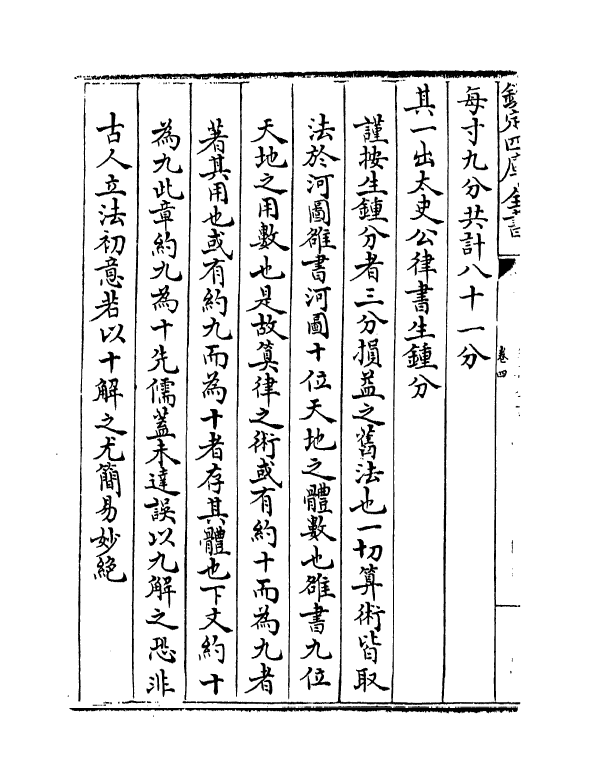 欽定四庫全書
卷四
每寸九分共計八十一分
其一出太史公律書生鍾分
謹按生鍾分者三分損益之舊法也一切算術皆取
法於河圖雒書河圖十位天地之體數也雒書九位
天地之用數也是故算律之術或有約十而為九者
著其用也或有約九而為十者存其體也下文約十
為九此章約九為十先儒蓋未達誤以九解之恐非
古人立法初意若以十解之尤簡易妙絶